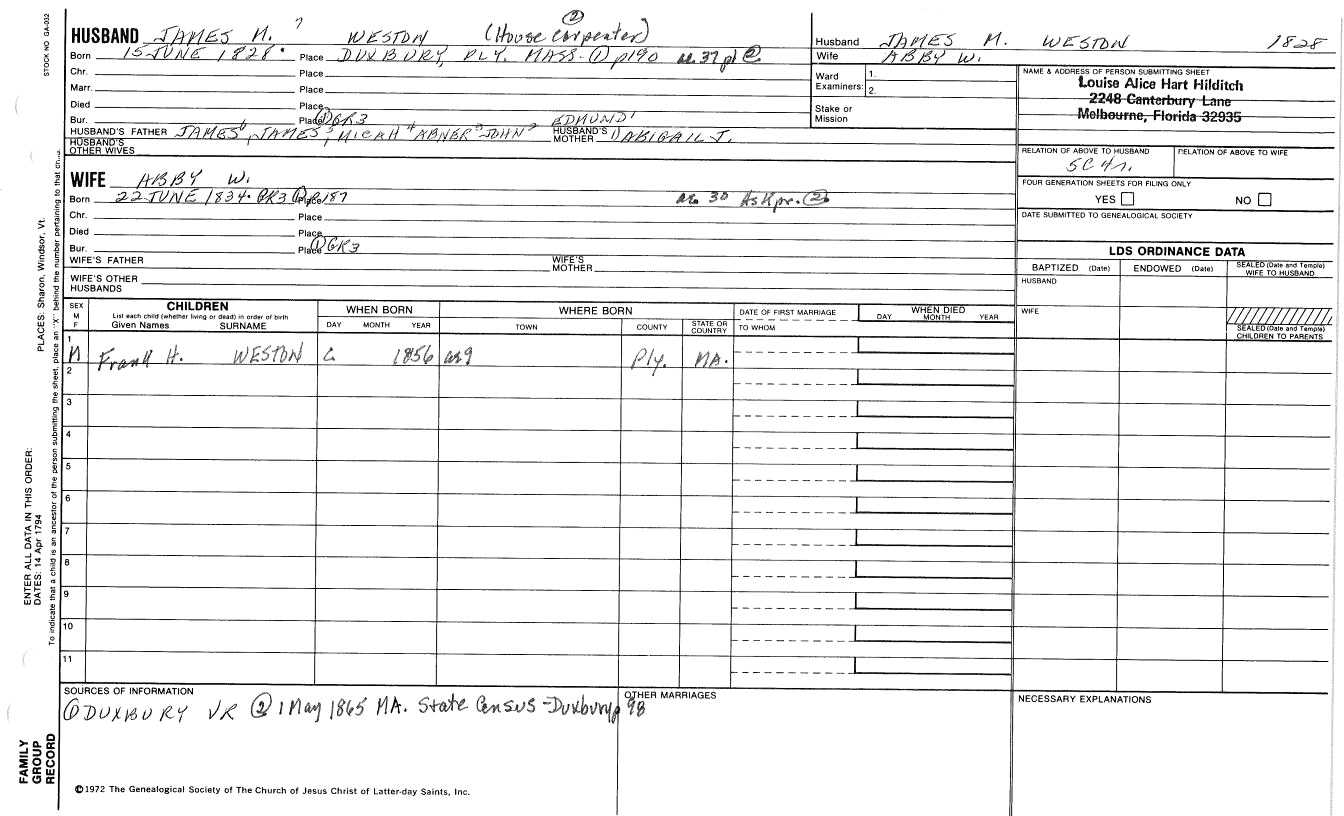 STOCK NO GA-032
HUSBAND JAMES M. 7 WESTON (House Carpenter) ②
Born 15 JUNE 1828. Place DUXBURY, PLY. MASS-① p190 ae. 37 pl ②
Chr. Place
Marr. Place
Died Place
Bur. Place ① GR3
HUSBAND'S FATHER JAMES 6, JAMES 5, MICAH 4 ABNER 3 JOHN 2 EDMUND 1 HUSBAND'S MOTHER ① ABIGAIL J.
HUSBAND'S OTHER WIVES
WIFE ABBY W.
Born 22 JUNE 1834. GR3 ① Place p187 ae. 30 ②
Chr. Place
Died Place
Bur. Place ① GR3
WIFE'S FATHER WIFE'S MOTHER
WIFE'S OTHER HUSBANDS
Husband JAMES M. WESTON 1828
Wife ABBY W.
Ward Examiners: 1. 2.
Stake or Mission
NAME & ADDRESS OF PERSON SUBMITTING SHEET
Louise Alice Hart Hilditch
2248 Canterbury Lane
Melbourne, Florida 32935
RELATION OF ABOVE TO HUSBAND RELATION OF ABOVE TO WIFE
5C 4r.
FOUR GENERATION SHEETS FOR FILING ONLY
YES NO
DATE SUBMITTED TO GENEALOGICAL SOCIETY
LDS ORDINANCE DATA
BAPTIZED (Date) ENDOWED (Date) SEALED (Date and Temple) WIFE TO HUSBAND
HUSBAND
WIFE
SEALED (Date and Temple) CHILDREN TO PARENTS
SEX M F
CHILDREN
List each child (whether living or dead) in order of birth
Given Names SURNAME
WHEN BORN
DAY MONTH YEAR
WHERE BORN
TOWN COUNTY STATE OR COUNTRY
DATE OF FIRST MARRIAGE
TO WHOM
WHEN DIED
DAY MONTH YEAR
1 M Frank H. WESTON C 1856 ae9 Ply. MA.
2
3
4
5
6
7
8
9
10
11
SOURCES OF INFORMATION
① DUXBURY VR ② 1 May 1865 MA. State Census-Duxbury p 98
OTHER MARRIAGES
NECESSARY EXPLANATIONS
©1972 The Genealogical Society of The Church of Jesus Christ of Latter-day Saints, Inc.
FAMILY GROUP RECORD
ENTER ALL DATA IN THIS ORDER:
DATES: 14 Apr 1794
PLACES: Sharon, Windsor, Vt.
To indicate that a child is an ancestor of the person submitting the sheet, place an "X" behind the number pertaining to that